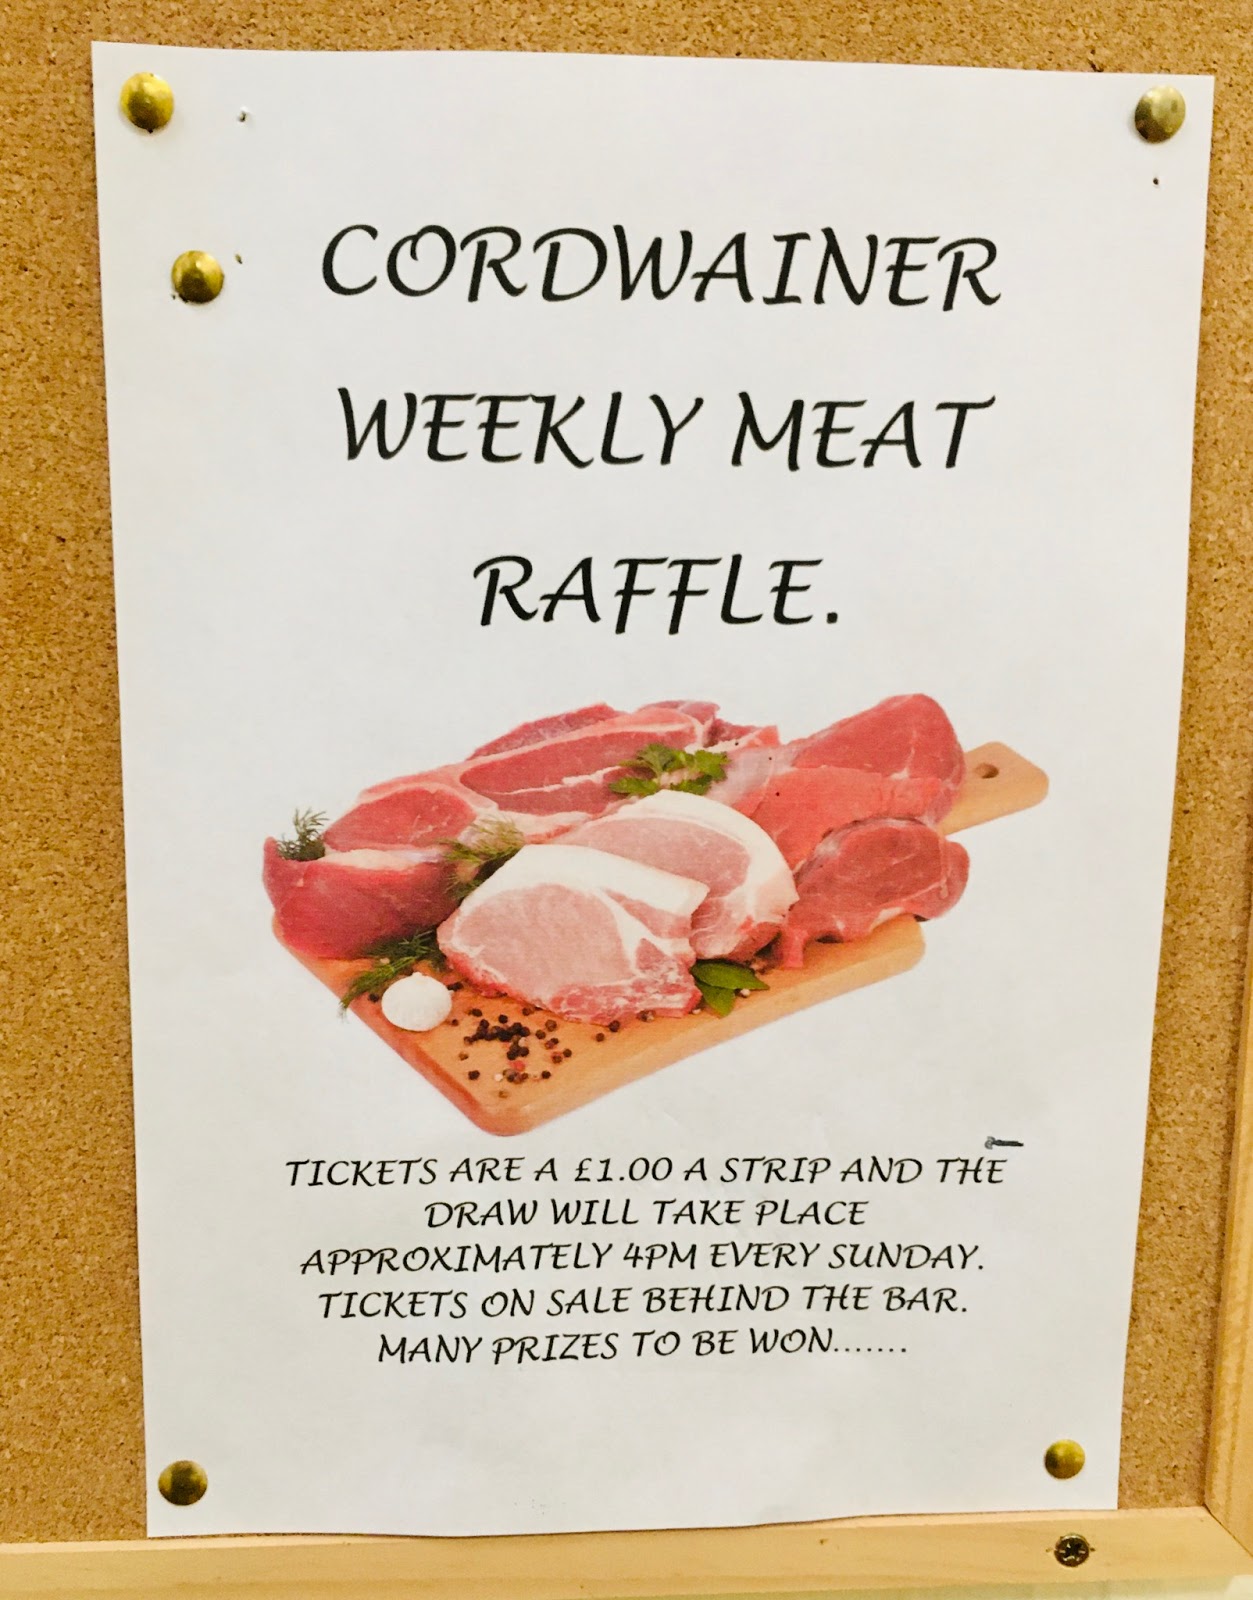 CORDWAINER
WEEKLY MEAT
RAFFLE.
TICKETS ARE A £1.00 A STRIP AND THE
DRAW WILL TAKE PLACE
APPROXIMATELY 4PM EVERY SUNDAY.
TICKETS ON SALE BEHIND THE BAR.
MANY PRIZES TO BE WON.......